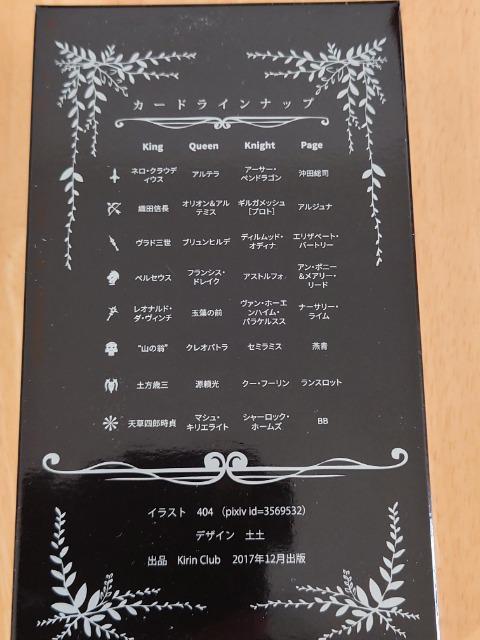 カードラインナップ
King Queen Knight Page
ネロ・クラウデ
ィウス
アルテラ
アーサー・
ペンドラゴン
沖田総司
織田信長
オリオン&アル
テミス
ギルガメッシュ
[プロト]
アルジュナ
ヴラド三世
ブリュンヒルデ
ディルムッド・
オディナ
エリザベート・
バートリー
ペルセウス
フランシス・
ドレイク
アストルフォ
アン・ボニー
&メアリー・
リード
レオナルド・
ダ・ヴィンチ
玉藻の前
ヴァン・ホーエ
ンハイム・
パラケルスス
ナーサリー・
ライム
"山の翁"
クレオパトラ
セミラミス
燕青
土方歳三
源頼光
クー・フーリン
ランスロット
天草四郎時貞
マシュ・
キリエライト
シャーロック・
ホームズ
BB
イラスト 404 (pixiv id=3569532)
デザイン 土土
出品 Kirin Club 2017年12月出版